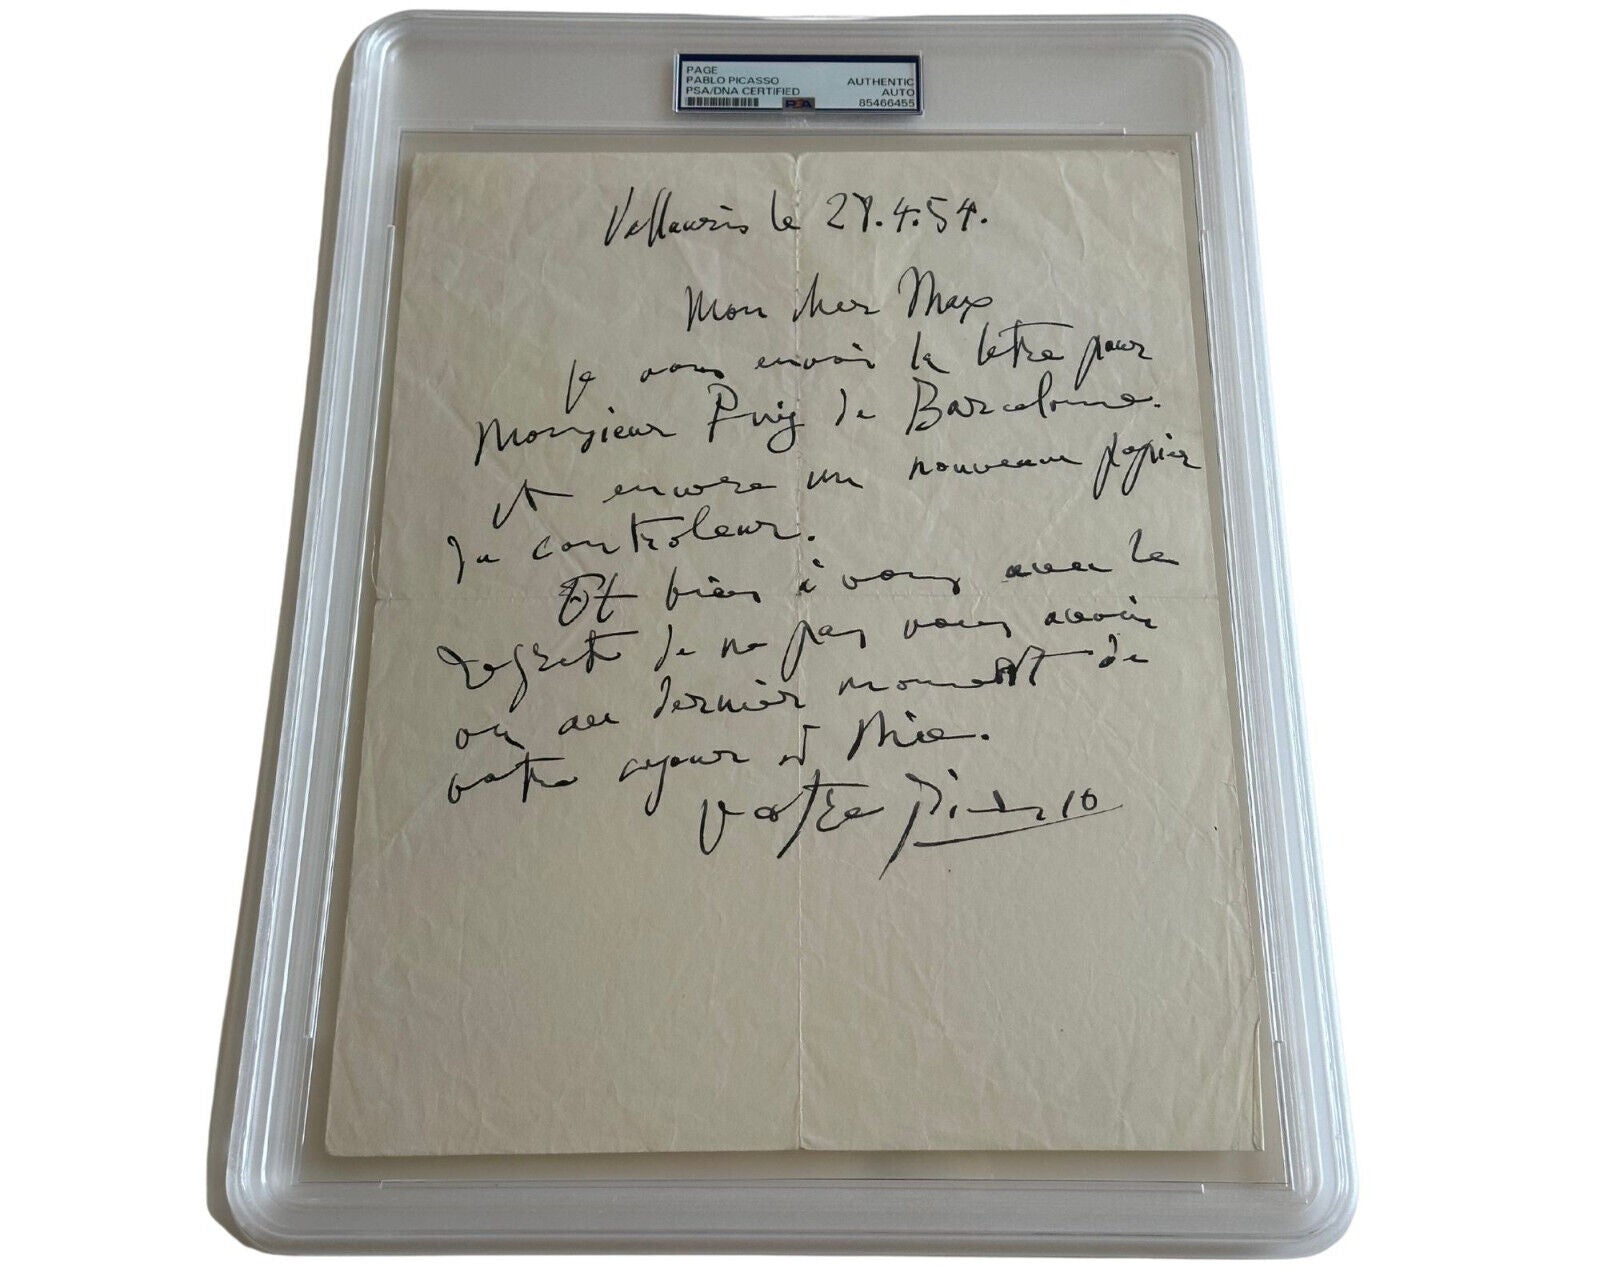 PAGE
PABLO PICASSO
PSA/DNA CERTIFIED
AUTHENTIC
AUTO
PSA
85466455
Vallauris le 27.4.54.
Mon cher Max
je vous envoi la lettre pour
Monsieur Puig de Barcelone.
et encore un nouveau papier
du controleur.
Et bien à vous avec le
regret de ne pas vous avoir
au dernier moment de
votre sejour à Nice.
votre Picasso